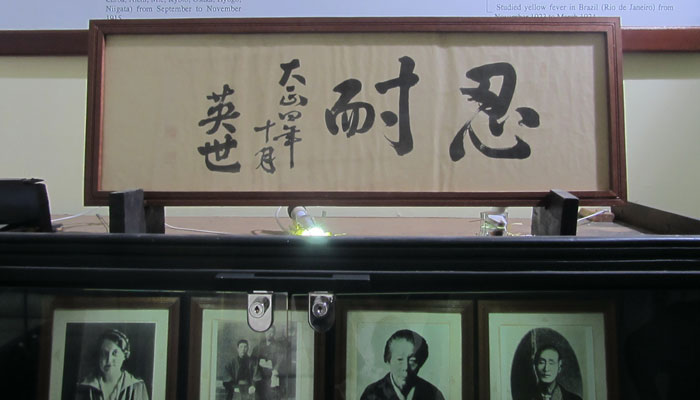 Niigata) from September to November
1915.
Studied yellow fever in Brazil (Rio de Janeiro) from
November 1923 to March 1924
忍耐
大正四年
十月
英世